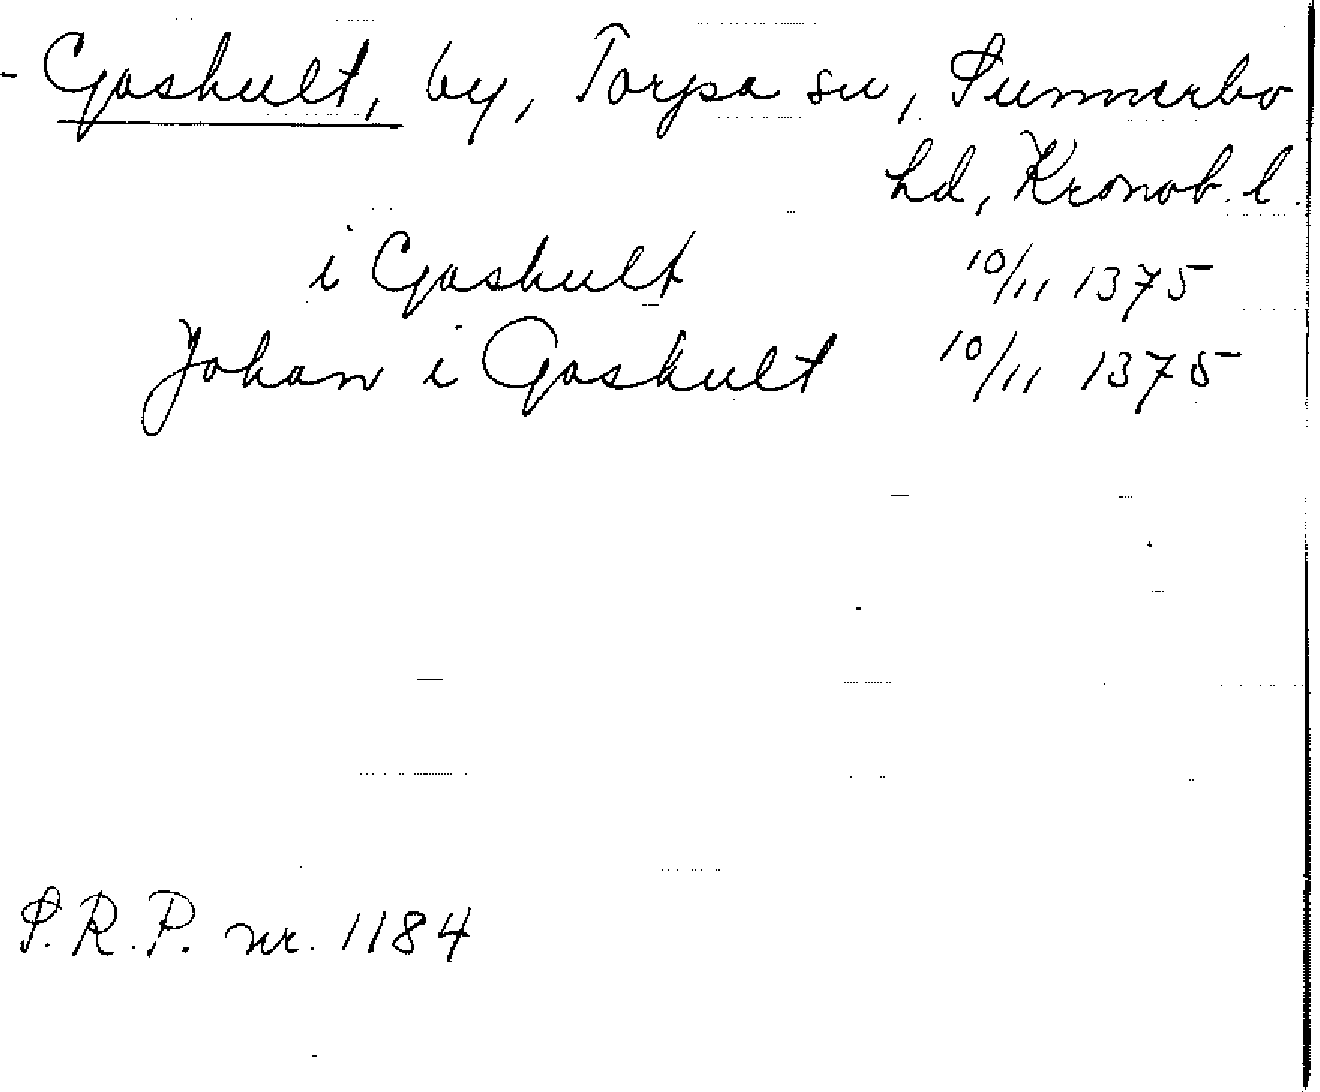 - Gashult, by, Torpa sn, Sunnerbo
hd, Kronob. l.
i Gashult 10/11 1375
Johan i Gashult 10/11 1375
S.R.P. nr. 1184